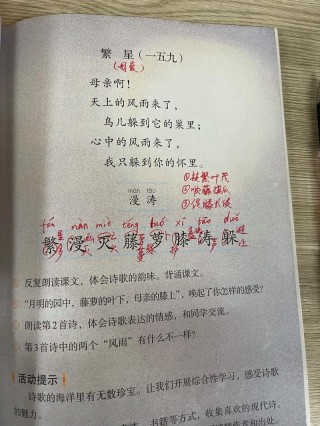 繁 星（一五九）
（母爱）
母亲啊！
天上的风雨来了，
鸟儿躲到它的巢里；
心中的风雨来了，
我只躲到你的怀里。
màn tāo
漫 涛
fán màn miè téng luó xī tāo duǒ
繁 漫 灭 藤 萝 膝 涛 躲
反复朗读课文，体会诗歌的韵味。背诵课文。
“月明的园中，藤萝的叶下，母亲的膝上”，唤起了你怎样的感受？
朗读第2首诗，体会诗歌表达的情感，和同学交流。
第3首诗中的两个“风雨”有什么不一样？
活动提示
诗歌的海洋里有无数珍宝。让我们开展综合性学习，感受诗歌
的魅力。
书籍等方式，收集喜欢的现代诗。
作者和出处。